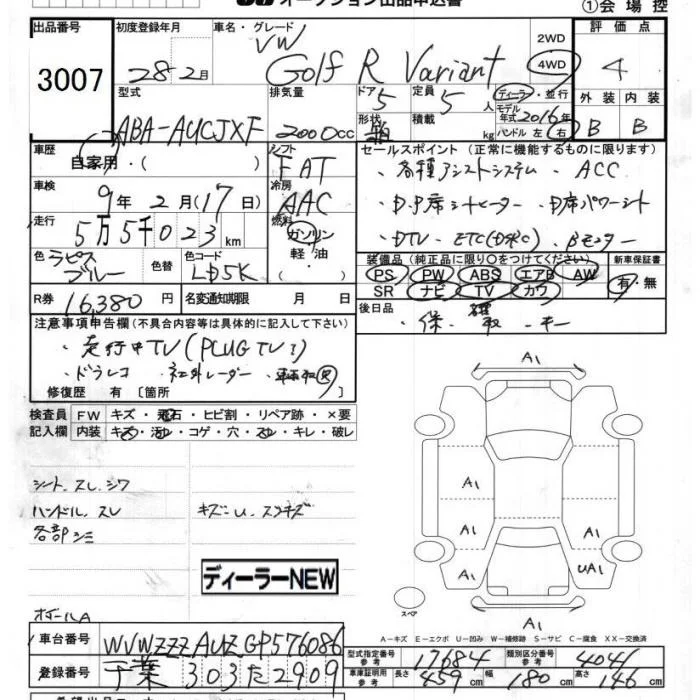 オークション出品申込書
①会場控
出品番号
3007
初度登録年月
28-2月
車名・グレード
VW
Golf R Variant
2WD
4WD
評価点
4
型式
ABA-AUCJXF
排気量
2000cc
ドア 5
定員 5人
形状
積載 kg
ディーラー・並行
モデル年式 2016年
ハンドル 左・右
外装 内装
B B
車歴
自家用・( )
シフト
FAT
車検
9年2月(17日)
冷房
AAC
走行
5万5千023km
燃料
ガソリン
軽油
・
色 ラピスブルー
色替
色コード
LD5K
R券 16,380円
名変通知期限 月 日
セールスポイント(正常に機能するものに限り)
・各種アシストシステム ・ACC
・D.P席シートヒーター ・D席パワーシート
・DTV ・ETC ・Bモニター
装備品(純正品に限り〇をつけてください)
新車保証書
PS PW ABS エアB AW
SR ナビ TV カワ
有・無
後日品
・保 ・取 ・キー
注意事項申告欄(不具合内容等は具体的に記入して下さい)
・走行中TV(PLUG TV!)
・ドラレコ ・社外レーダー
修復歴 有 〔箇所
検査員記入欄
FW キズ・飛石・ヒビ割・リペア跡・×要
内装 キズ・汚れ・コゲ・穴・スレ・キレ・破レ
シート、スレ、シワ
ハンドル、スレ
各部シミ
キズ・U、スリキズ
ディーラーNEW
ホイールA
A1
A1
A1
A1
A1
A1
UA1
A1
スペア
A-キズ E-エクボ U-凹み W-補修跡 S-サビ C-腐食 XX-交換済
車台番号
WVWZZZAUZGP576086
登録番号
千葉 303 た 2909
型式指定番号 参考
17684
類別区分番号 参考
4041
車庫証明用 参考
長さ 459cm
幅 180cm
高さ 146cm